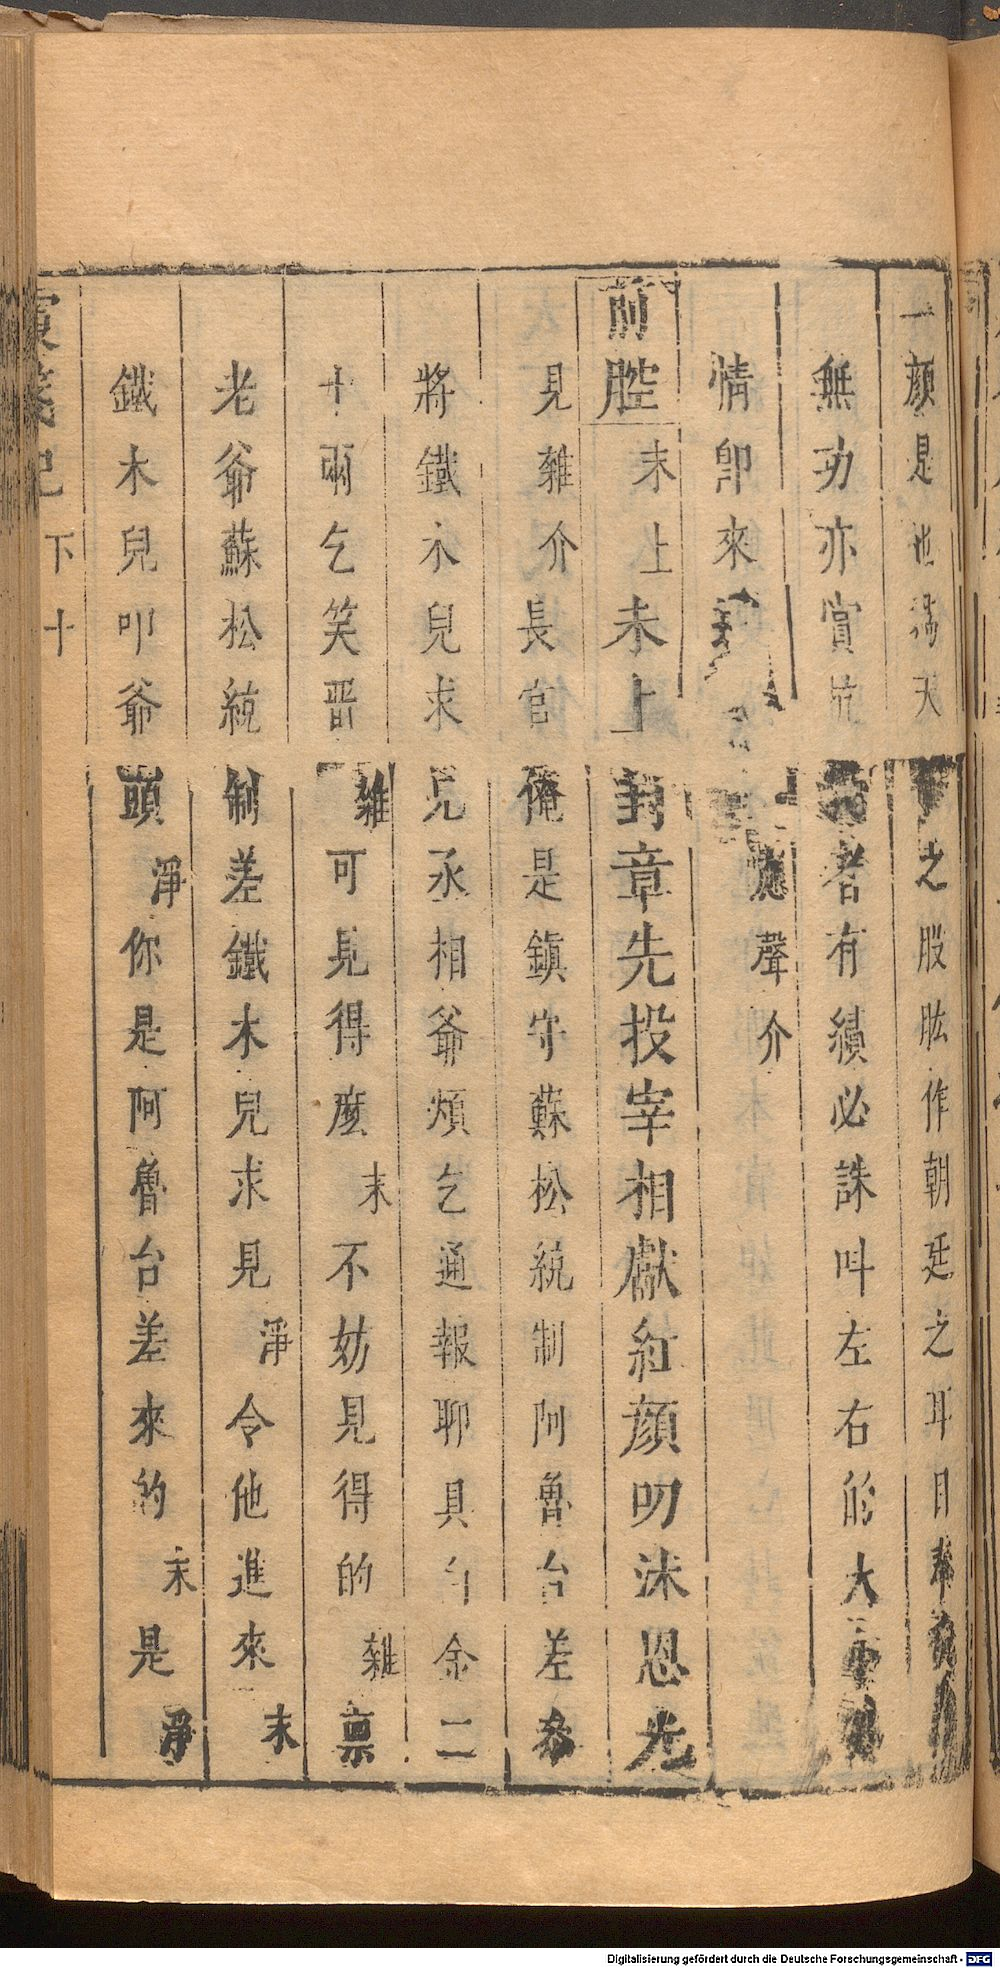 一顏是也滿天 之股肱作朝廷之耳目奉
無功亦賞 者有績必誅叫左右的大
情卽來 應聲介
前腔 末上 未上封章先投宰相獻紅顏叨沐恩光
見雜介長官俺是鎮守蘇松統制阿魯台差叅
將鐵木兒求見丞相爺煩乞通報聊具白金二
十兩乞笑畱 雜可見得麼 末不妨見得的 雜禀
老爺蘇松統制差鐵木兒求見 淨令他進來 末
鐵木兒叩爺頭 淨你是阿魯台差來的 末是 淨
箋記 下 十
Digitalisierung gefördert durch die Deutsche Forschungsgemeinschaft - DFG